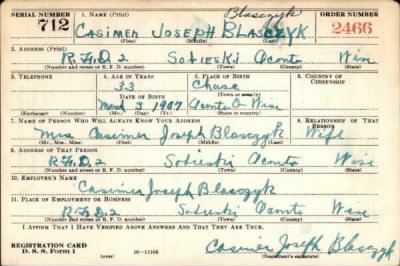 SERIAL NUMBER 1. NAME (Print) Blasczyk ORDER NUMBER
712 CASIMER JOSEPH BLASCZYK 2466
(First) (Middle) (Last)
2. ADDRESS (Print)
R.F.D. 2 Sobieski Oconto Wis
(Number and street or R. F. D. number) (Town) (County) (State)
3. TELEPHONE 4. AGE IN YEARS 5. PLACE OF BIRTH 6. COUNTRY OF CITIZENSHIP
33 Chase
DATE OF BIRTH (Town or county)
3 1907 Oconto Wise
(Exchange) (Number) (Mo.) (Day) (Yr.) (State or country)
7. NAME OF PERSON WHO WILL ALWAYS KNOW YOUR ADDRESS 8. RELATIONSHIP OF THAT PERSON
Mrs Casimer Joseph Blasczyk Wife
(Mr., Mrs., Miss) (First) (Middle) (Last)
9. ADDRESS OF THAT PERSON
R.F.D. 2 Sobieski Oconto Wise
(Number and street or R. F. D. number) (Town) (County) (State)
10. EMPLOYER'S NAME
Casimer Joseph Blasczyk
11. PLACE OF EMPLOYMENT OR BUSINESS
R.F.D. 2 Sobieski Oconto Wise
(Number and street or R. F. D. number) (Town) (County) (State)
I AFFIRM THAT I HAVE VERIFIED ABOVE ANSWERS AND THAT THEY ARE TRUE.
REGISTRATION CARD
D. S. S. Form 1 (over) 16—17105 Casimer Joseph Blasczyk
(Registrant's signature)